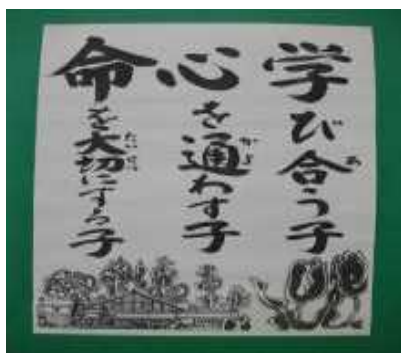 学び合う子
心を通わす子
命を大切にする子